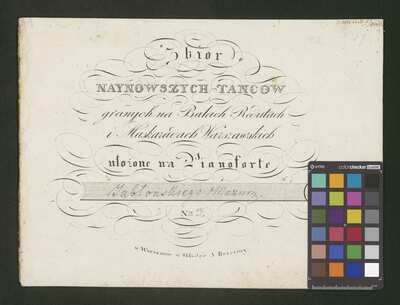 Zbior
NAYNOWSZYCH TANCOW
granych na Balach Redutach
i Maskaradach Warszawskich
ułożone na Pianoforte
Jabłonskiego Mazur.
No 2.
w Warszawie w Składzie A Brzeziny
colorchecker